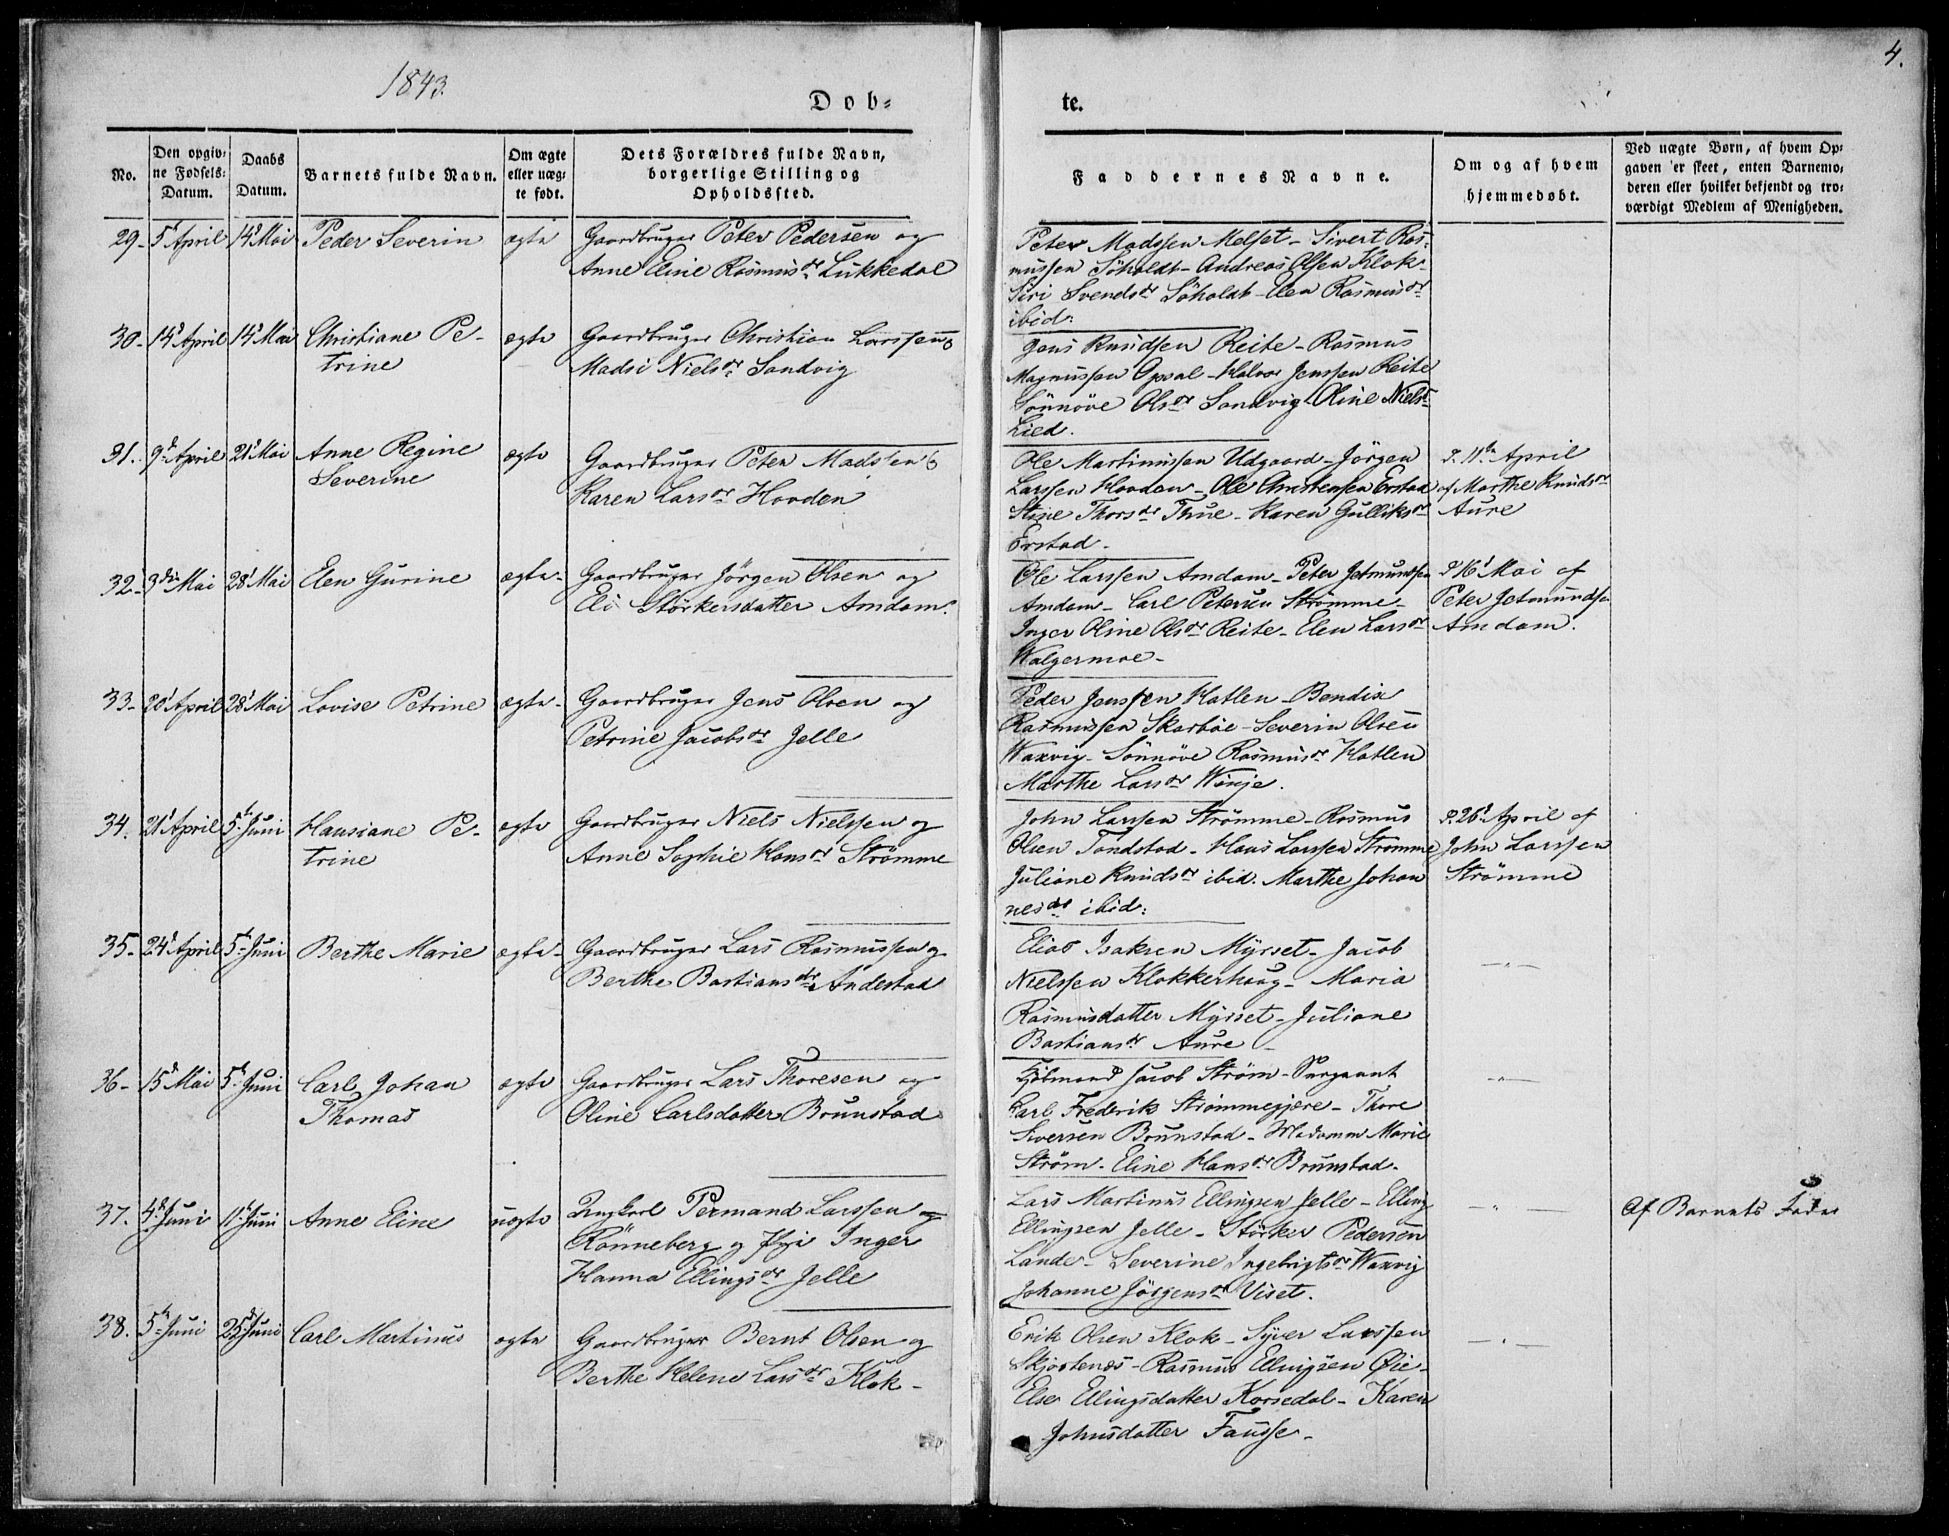 1843.
Dob=
te.
4.
No.
Den opgiv=
ne Fødsels=
Datum.
Daabs
Datum.
Barnets fulde Navn.
Om ægte
eller uæg=
te født.
Dets Forældres fulde Navn,
borgerlige Stilling og
Opholdssted.
Faddernes Navne.
Om og af hvem
hjemmedøbt.
Ved uægte Børn, af hvem Op=
gaven er skeet, enten Barnemo=
deren eller hvilket bekjendt og tro=
værdigt Medlem af Menigheden.
29-
5t April
14d Mai
Peder Severin
ægte
Gaardbruger Peter Pedersen og
Anne Eline Rasmusdr Lükkedal
Peter Madssen Melset - Sivert Ras-
mussen Søholdt - Andreas Olsen Klok-
Siri Svendsdr Søholdt - Elen Rasmusdr
ibid:
30-
14d April
14d Mai
Christiane Pe-
trine
ægte
Gaardbruger Christian Larssen og
Madsi Nielsdr Sandvig
Jens Knudsen Reite - Rasmus
Magnussen Opsal - Halvor Jenssen Reite
Sønnøve Olsdr Sandvig - Oline Nielsdr
Lied.
31.
9d April
21d Mai
Anne Regine
Severine
ægte
Gaardbruger Peter Madssen og
Karen Larsdr Hovden
Ole Martinussen Udgaard - Jørgen
Larssen Hovden - Ole Christensen Erstad
Stine Thorsdr Thue - Karen Gulliksdr
Erstad -
d. 11te April
af Marthe Knudsdr
Aure
32-
3die Mai
28d Mai
Elen Gurine
ægte-
Gaardbruger Jörgen Olsen og
Eli Störkersdatter Amdam.
Ole Larssen Amdam - Peter Jetmundsen
Amdam - Carl Petersen Strömme -
Inger Oline Olsdr Reite - Elen Larsdr
Walgermoe -
d. 16d Mai af
Peter Jetmundsen
Amdam.
33-
20d April
28d Mai
Lovise Petrine
ægte-
Gaardbruger Jens Olsen og
Petrine Jacobsdr Jelle
Peder Jenssen Hatlen - Bendix
Rasmussen Skarbøe - Severin Olsen
Waxvig - Sønnøve Rasmusdr Hatlen
Marthe Larsdr Winje.
34.
21d April
5t Juni
Hansiane Pe-
trine
ægte
Gaardbruger Niels Nielssen og
Anne Sophie Hansdr Strømme
John Larssen Strømme - Rasmus
Olsen Tandstad - Hans Larssen Strømme
Juliane Knudsdr ibid. Marthe Johan
nesdr ibid:
d. 26d April af
John Larssen
Strømme
35-
24d April
5t Juni
Berthe Marie
ægte-
Gaardbruger Lars Rasmussen og
Berthe Bastiansdr Andestad
Elias Isaksen Myrset - Jacob
Nielssen Klokkerhaug - Maria
Rasmusdatter Myrset - Juliane
Bastiansdr Aure -
- " -
36-
15d Mai
5t Juni
Carl Johan
Thomas
ægte
Gaardbruger Lars Thoresen og
Oline Carlsdatter Brunstad
Kjøbmand Jacob Strøm - Sergeant
Carl Frederik Strømmegjære - Thore
Siversen Brunstad - Madamm Marie
Strøm - Eline Hansdr Brunstad -
- " -
37.
4d Juni
11te Juni
Anne Eline
uægte
Ungkarl Permand Larssen
Rønneberg og Pige Inger
Hanna Ellingsdr Jelle
Lars Martinus Ellingsen Jelle - Elling
Ellingsen Jelle - Störker Pedersen
Lande - Severine Ingebrigtsdr Waxvig
Johanne Jörgensdr Viset.
- " -
Af Barnets Fader
38.
5t Juni
25d Juni
Carl Martinus
ægte
Gaardbruger Bernt Olsen og
Berthe Helene Larsdr Klok -
Erik Olsen Klok - Syver Larssen
Skjortenes - Rasmus Ellingsen Øie -
Else Ellingsdatter Korsedal - Karen
Johnsdatter Fausse -
- " -